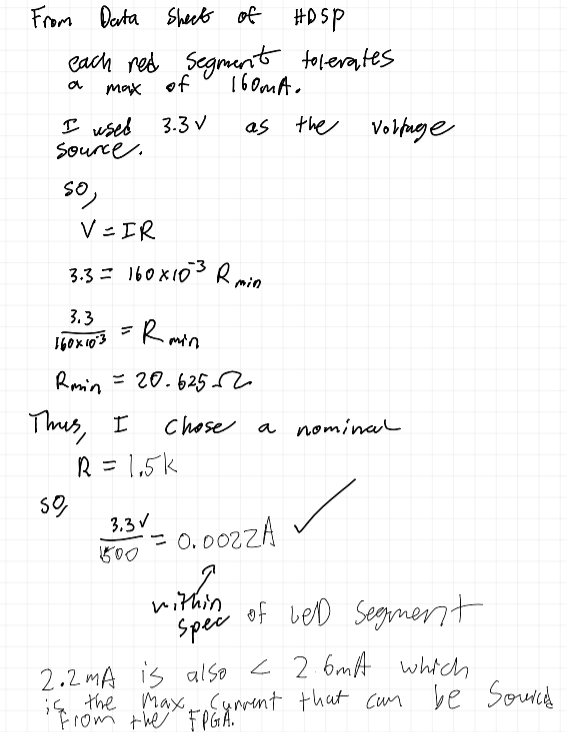 From Data Sheet of HDSP
each red segment tolerates
a max of 160mA.
I used 3.3V as the voltage
source.
so,
V = IR
3.3 = 160 × 10^-3 R min
3.3 / 160×10^-3 = R min
R min = 20.625 Ω
Thus, I chose a nominal
R = 1.5k
so,
3.3V / 1500 = 0.0022A ✓
within
spec of LED segment
2.2mA is also < 2.6mA which
is the max current that can be sourced
From the FPGA.